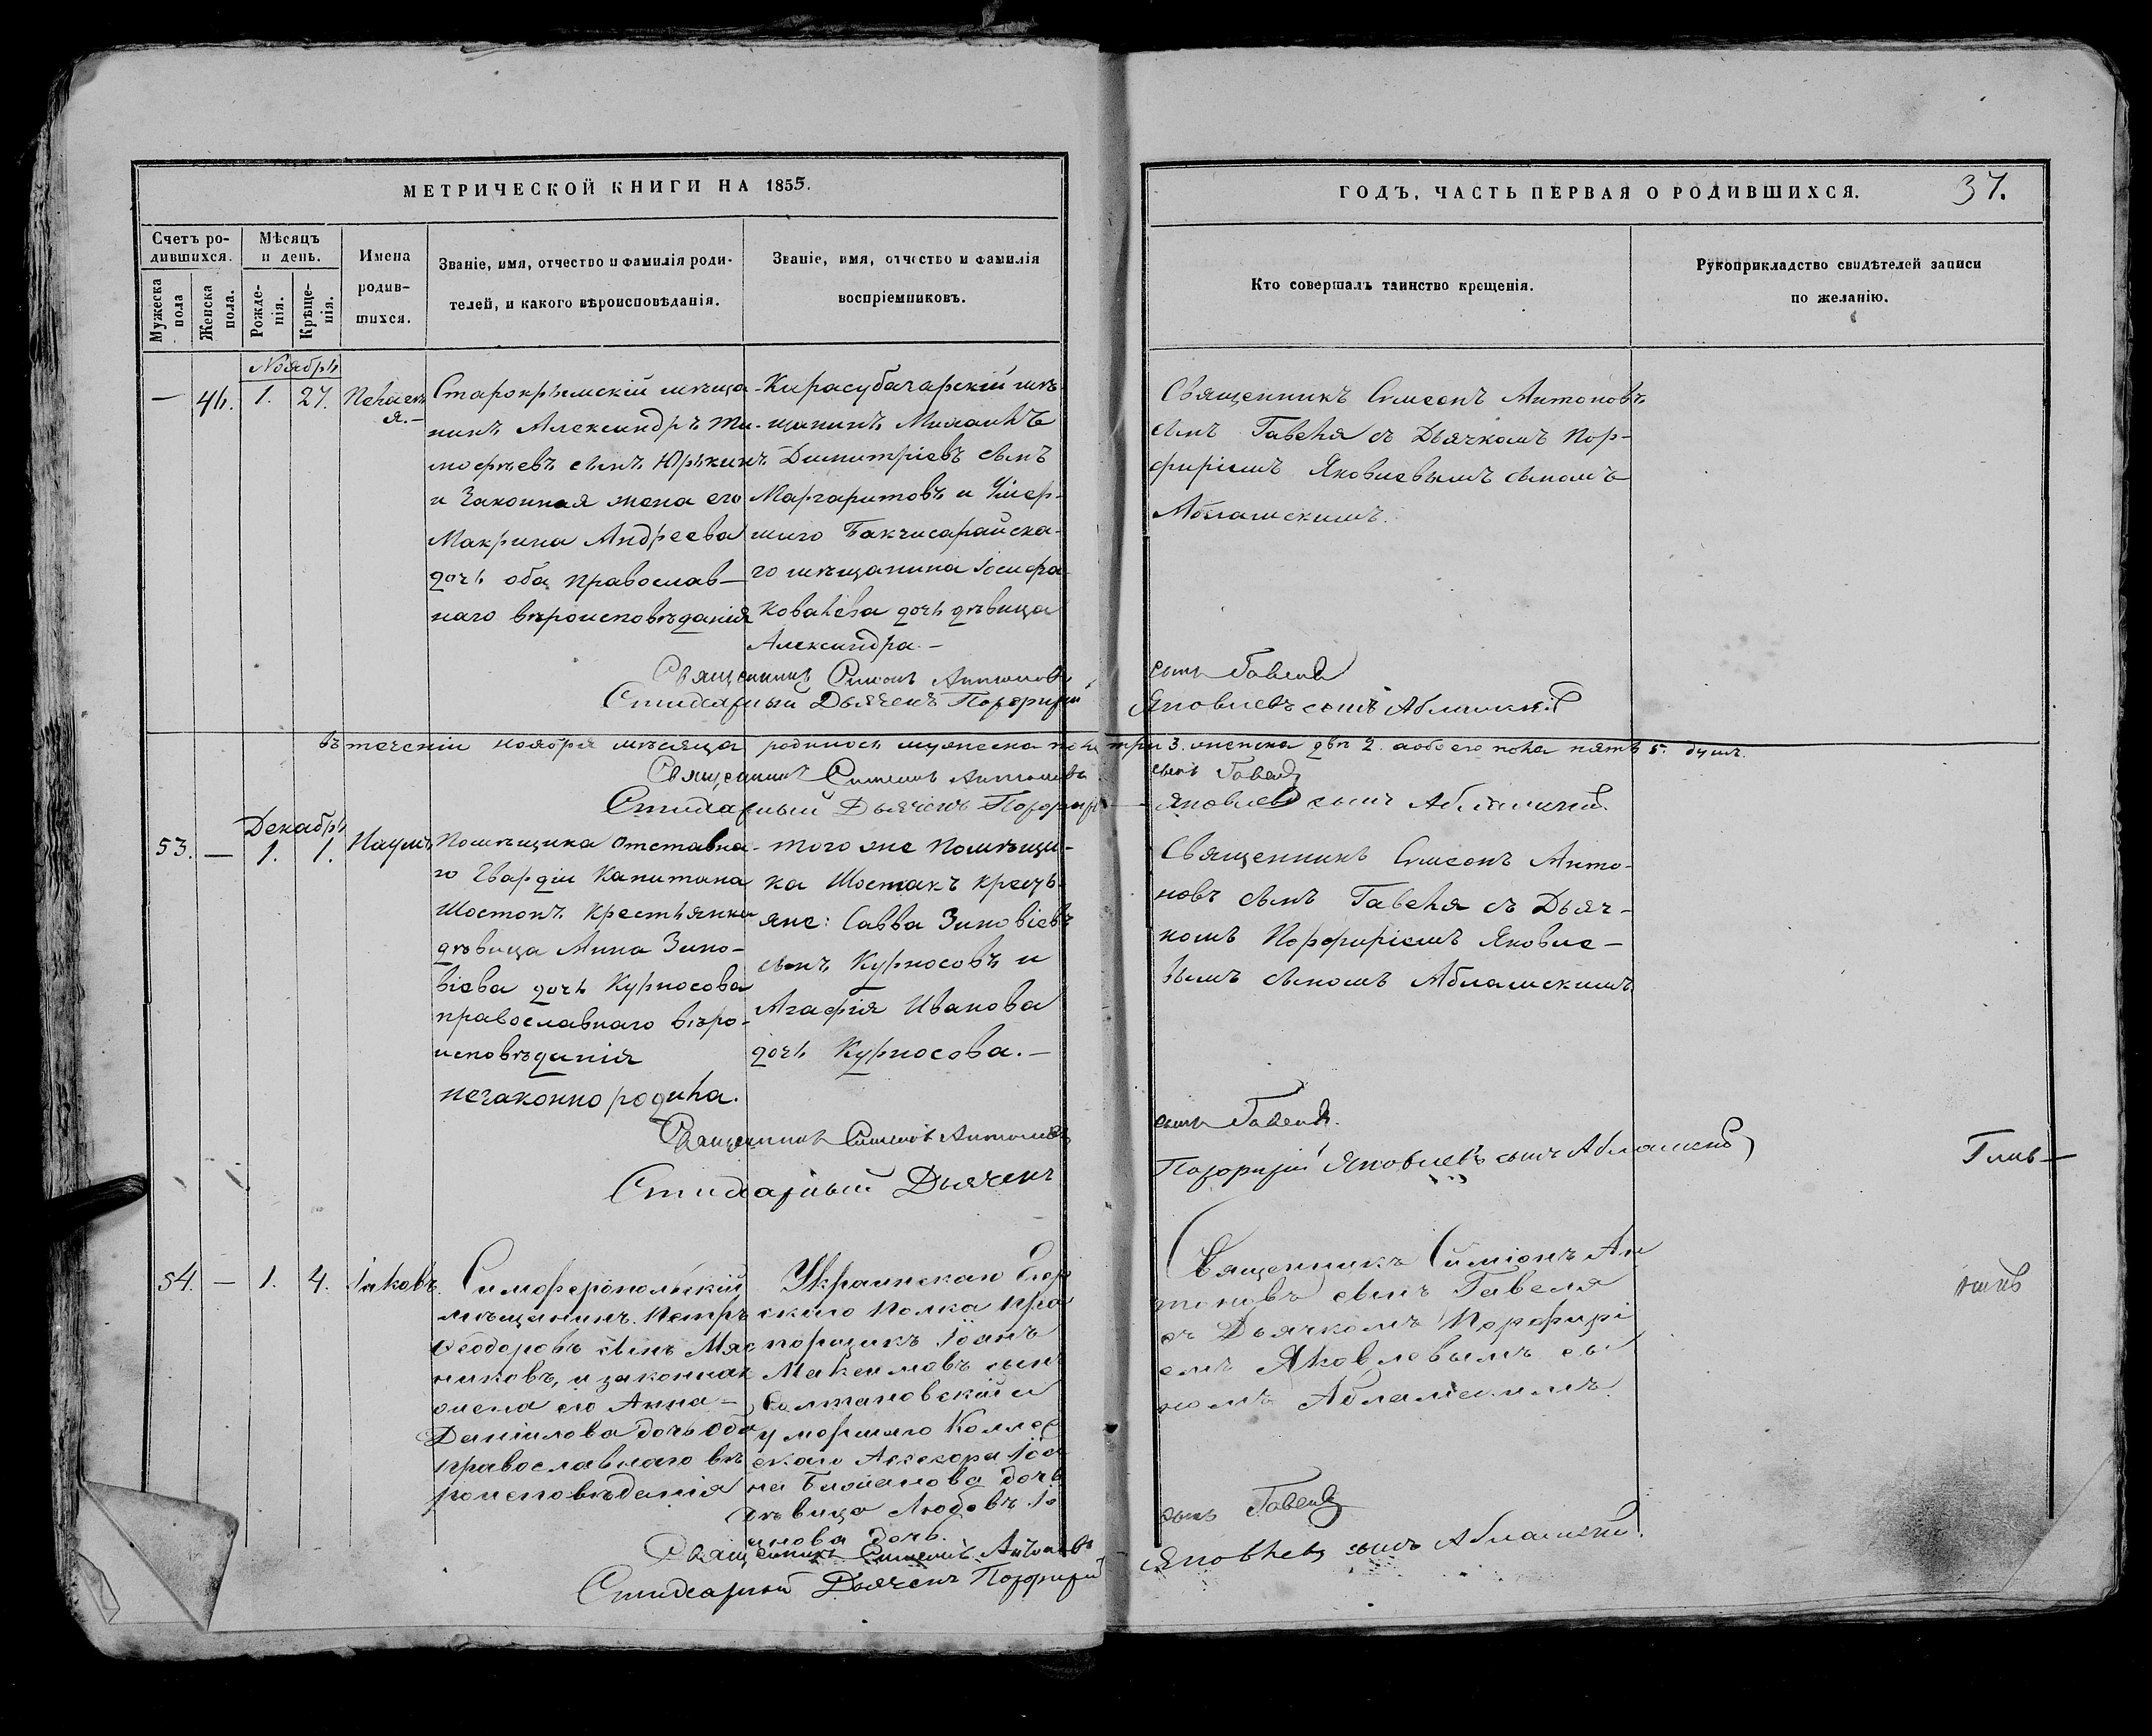 МЕТРИЧЕСКОЙ КНИГИ НА 1855.
Счетъ ро-
дившихся.
Мужеска
пола
Женска
пола.
Мѣсяцъ
и день.
Рожде-
нія.
Крѣще-
нія.
Имена
родив-
шихся.
Званіе, имя, отчество и фамилія роди-
телей, и какого вѣроисповѣданія.
Званіе, имя, отчество и фамилія
воспріемниковъ.
ГОДЪ, ЧАСТЬ ПЕРВАЯ О РОДИВШИХСЯ.
37.
Кто совершалъ таинство крещенія.
Рукоприкладство свидѣтелей записи
по желанію.
Ноябрь
— 46. 1. 27. Пелаге
я.—
Старокрымскій мѣща-
нинъ Александръ Ти-
мофѣевъ сынъ Юркинъ
и Законная жена его
Макрина Андреева
дочь оба православ-
наго вѣроисповѣданія
Карасубазарскій мѣ-
щанинъ Михаилъ
Димитріевъ сынъ
Маргаритовъ и Умер-
шаго Бакчисарайска-
го мѣщанина Іосифа
Ковалева дочь дѣвица
Александра.—
Священникъ Симеонъ Антоновъ
сынъ Гавеля съ Дьячкомъ Пор-
фиріемъ Яковлевымъ сыномъ
Абламскимъ.
Священникъ Симеонъ Антоновъ сынъ Гавеля
Стихарный Дьячекъ Порфирій Яковлевъ сынъ Абламскій
въ теченіи ноября мѣсяца родилось мужеска пола три 3. женска двѣ 2. а обоего пола пять 5. душъ.
Священникъ Симеонъ Антоновъ сынъ Гавеля
Стихарный Дьячекъ Порфирій Яковлевъ сынъ Абламскій.
Декабрь
53. — 1. 1. Наумъ
Помѣщика отставна-
го Гвардіи Капитана
Шостакъ Крестьянка
дѣвица Анна Зино-
віева дочь Курносова
православнаго вѣро-
исповѣданія
незаконно родила.
того же Помѣщи-
ка Шостакъ кресть-
яне: Савва Зиновіевъ
сынъ Курносовъ и
Агафія Иванова
дочь Курносова.—
Священникъ Симеонъ Анто-
новъ сынъ Гавеля съ Дьяч-
комъ Порфиріемъ Яковле-
вымъ сыномъ Абламскимъ.
Священникъ Симеонъ Антоновъ сынъ Гавеля.
Стихарный Дьячекъ Порфирій Яковлевъ сынъ Абламскій
54. — 1. 4. Іаковъ.
Симферопольскій
мѣщанинъ Петръ
Ѳеодоровъ сынъ Мяс
никовъ, и законная
жена его Анна—
Даніилова дочь оба
православнаго вѣ
роисповѣданія
Украинскаго Егер
скаго Полка Пра
порщикъ Іоанъ
Максимовъ сынъ
и
умершаго Коллеж
скаго Ассесора Іоа
на дочь
дѣвица Любовь Іо
анова дочь.
Священникъ Симіонъ Ан
тоновъ сынъ Гавеля
съ Дьячкомъ Порфирі
емъ Яковлевымъ сы
номъ Абламскимъ.
Священникъ Симеонъ Антоновъ сынъ Гавеля
Стихарный Дьячекъ Порфирій Яковлевъ сынъ Абламскій.